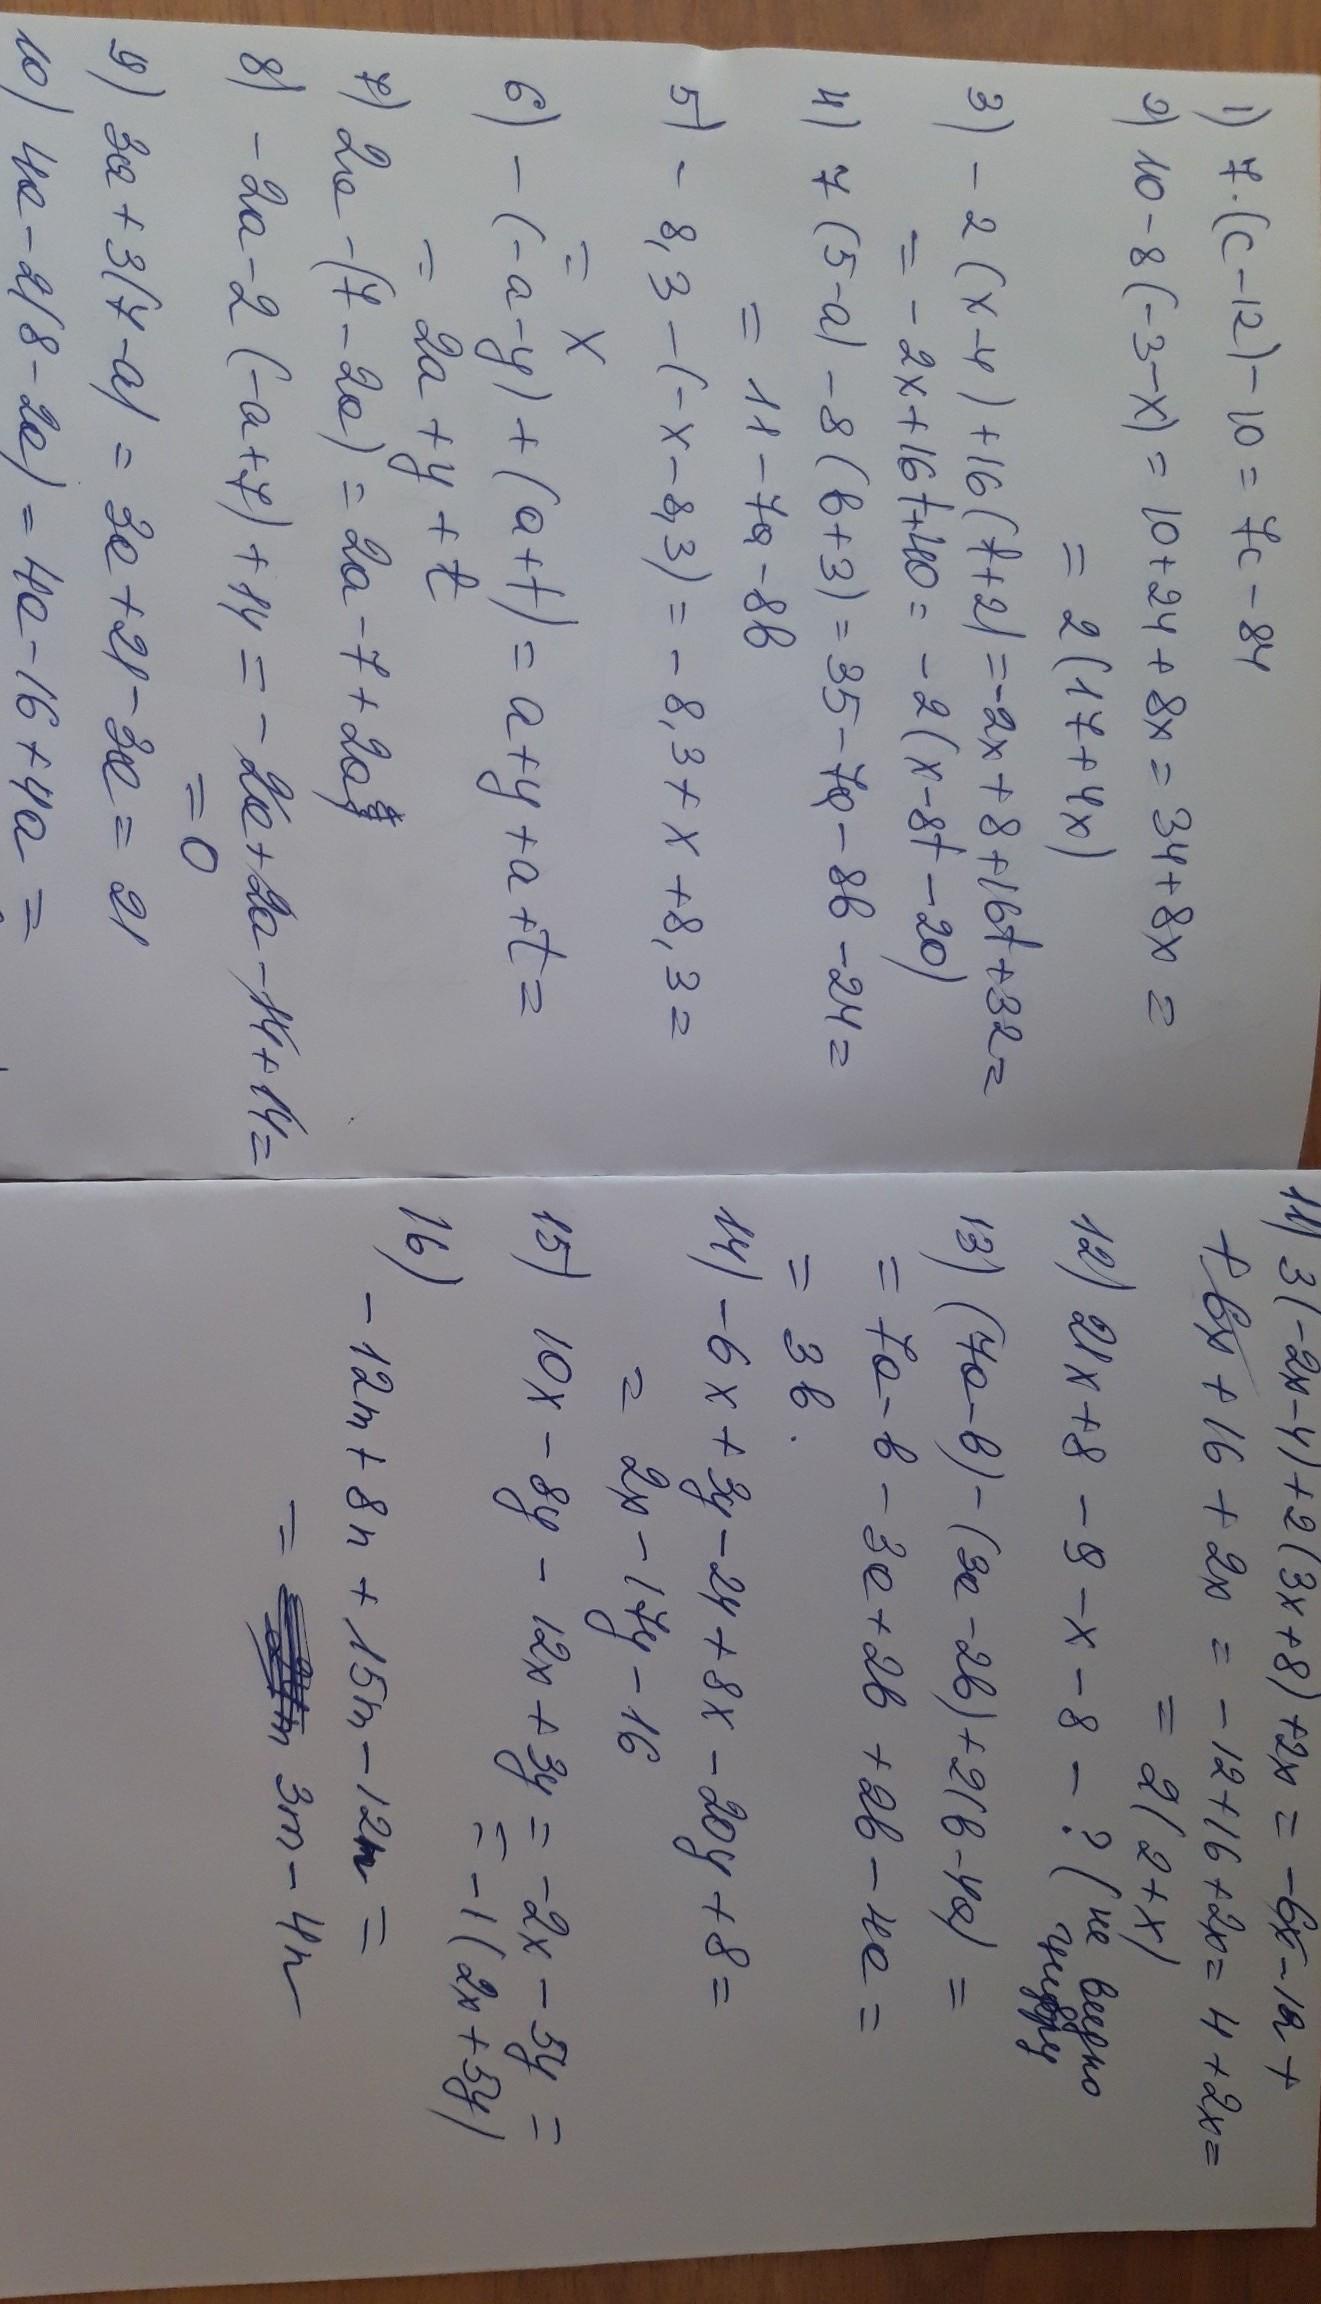 1) 7·(c-12)-10 = 7c-84
2) 10-8(-3-x) = 10+24+8x = 34+8x =
= 2(17+4x)
3) -2(x-4)+16(t+2) = -2x+8+16t+32 =
= -2x+16t+40 = -2(x-8t-20)
4) 7(5-a)-8(b+3) = 35-7a-8b-24 =
= 11-7a-8b
5) -8,3-(-x-8,3) = -8,3+x+8,3 =
= x
6) -(-a-y)+(a+t) = a+y+a+t =
= 2a+y+t
7) 2a-(7-2a) = 2a-7+2a
8) -2a-2(-a+7)+14 = -2a+2a-14+14 =
= 0
9) 3a+3(7-a) = 3a+21-3a = 21
10) 4a-2(8-2a) = 4a-16+4a =
11) 3(-2x-4)+2(3x+8)+2x = -6x-12+
+6x+16+2x = -12+16+2x = 4+2x =
= 2(2+x)
12) 21x+8-9-x-8-? (не видно
13) (7a-b)-(3a-2b)+2(b-4a) =
= 7a-b-3a+2b+2b-4a =
= 3b.
14) -6x+3y-24+8x-20y+8 =
= 2x-17y-16
15) 10x-8y-12x+3y = -2x-5y =
= -1(2x+5y)
16) -12m+8n+15m-12n =
= 3m-4n